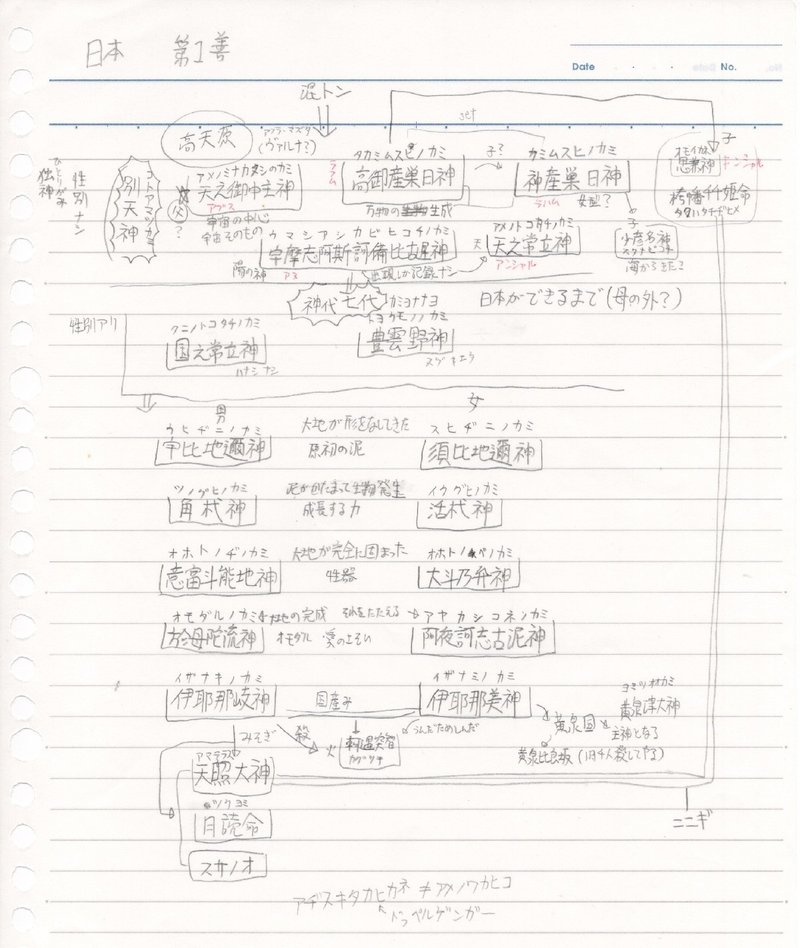 日本 第1善
Date No.
混トン
高天原
アフラ・マズダ
(ヴァルナ?)
set
ひとりがみ
独神
性別ナシ
コトアマツカミ
別天神
父?
アメノミナカヌシのカミ
天之御中主神
アプス
宇宙の中心
宇宙そのもの
タカミムスヒノカミ
高御産巣日神
万物の生成
子?
カミムスヒノカミ
神産巣日神
女型?
子
オモイカネ
思兼神
キンシャル
栲幡千千姫命
子
少彦名神
スクナビコナ
海からきた?
ウマシアシカビヒコヂノカミ
宇摩志阿斯訶備比古遅神
陽の神
出現しか記録ナシ
天
アメノトコタチノカミ
天之常立神
アンシャル
神代七代 カミヨナナヨ
日本ができるまで(母の外?)
性別アリ
クニノトコタチノカミ
国之常立神
ハナシナシ
トヨクモノノカミ
豊雲野神
男
女
ウヒヂニノカミ
宇比地邇神
大地が形をなしてきた
原初の泥
スヒヂニノカミ
須比地邇神
ツノグヒノカミ
角杙神
泥がかたまって生物発生
成長する力
イクグヒノカミ
活杙神
オホトノヂノカミ
意富斗能地神
大地が完全に固まった
性器
オホトノベノカミ
大斗乃弁神
オモダルノカミ
於母陀流神
大地の完成
それをたたえる
オモダル
アヤカシコネノカミ
阿夜訶志古泥神
イザナキノカミ
伊耶那岐神
国産み
イザナミノカミ
伊耶那美神
うんだためしんだ
黄泉国
ヨミツオオカミ
黄泉津大神
主神となる
黄泉比良坂(1日千人殺してやる)
みそぎ
殺
火
軻遇突智
カグツチ
アマテラス
天照大神
ツクヨミ
月読命
スサノオ
ニニギ
アヂスキタカヒカネ≠アメノワカヒコ
ドッペルゲンガー